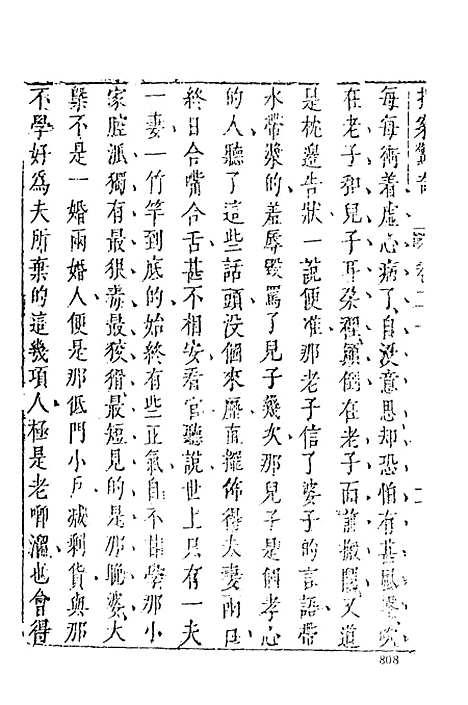 拍案驚奇
每每衝着虛心病了自沒意思却恐怕有甚風聲吹
在老子和兒子耳朶裡顛倒在老子面前搬鬬又道
是枕邊告狀一說便准那老子信了婆子的言語帶
水帶漿的羞辱毀罵了兒子幾次那兒子是個孝心
的人聽了這些話頭沒個來歷直擺佈得夫妻兩口
終日合嘴合舌甚不相安看官聽說世上只有一夫
一妻一竹竿到底的始終有些正氣自不甘學那小
家腔派獨有最狠毒最狡猾最短見的是那晚婆大
槩不是一婚兩婚人便是那低門小戶減剩貨與那
不學好爲夫所棄的這幾項人極是老唧溜也會得
808